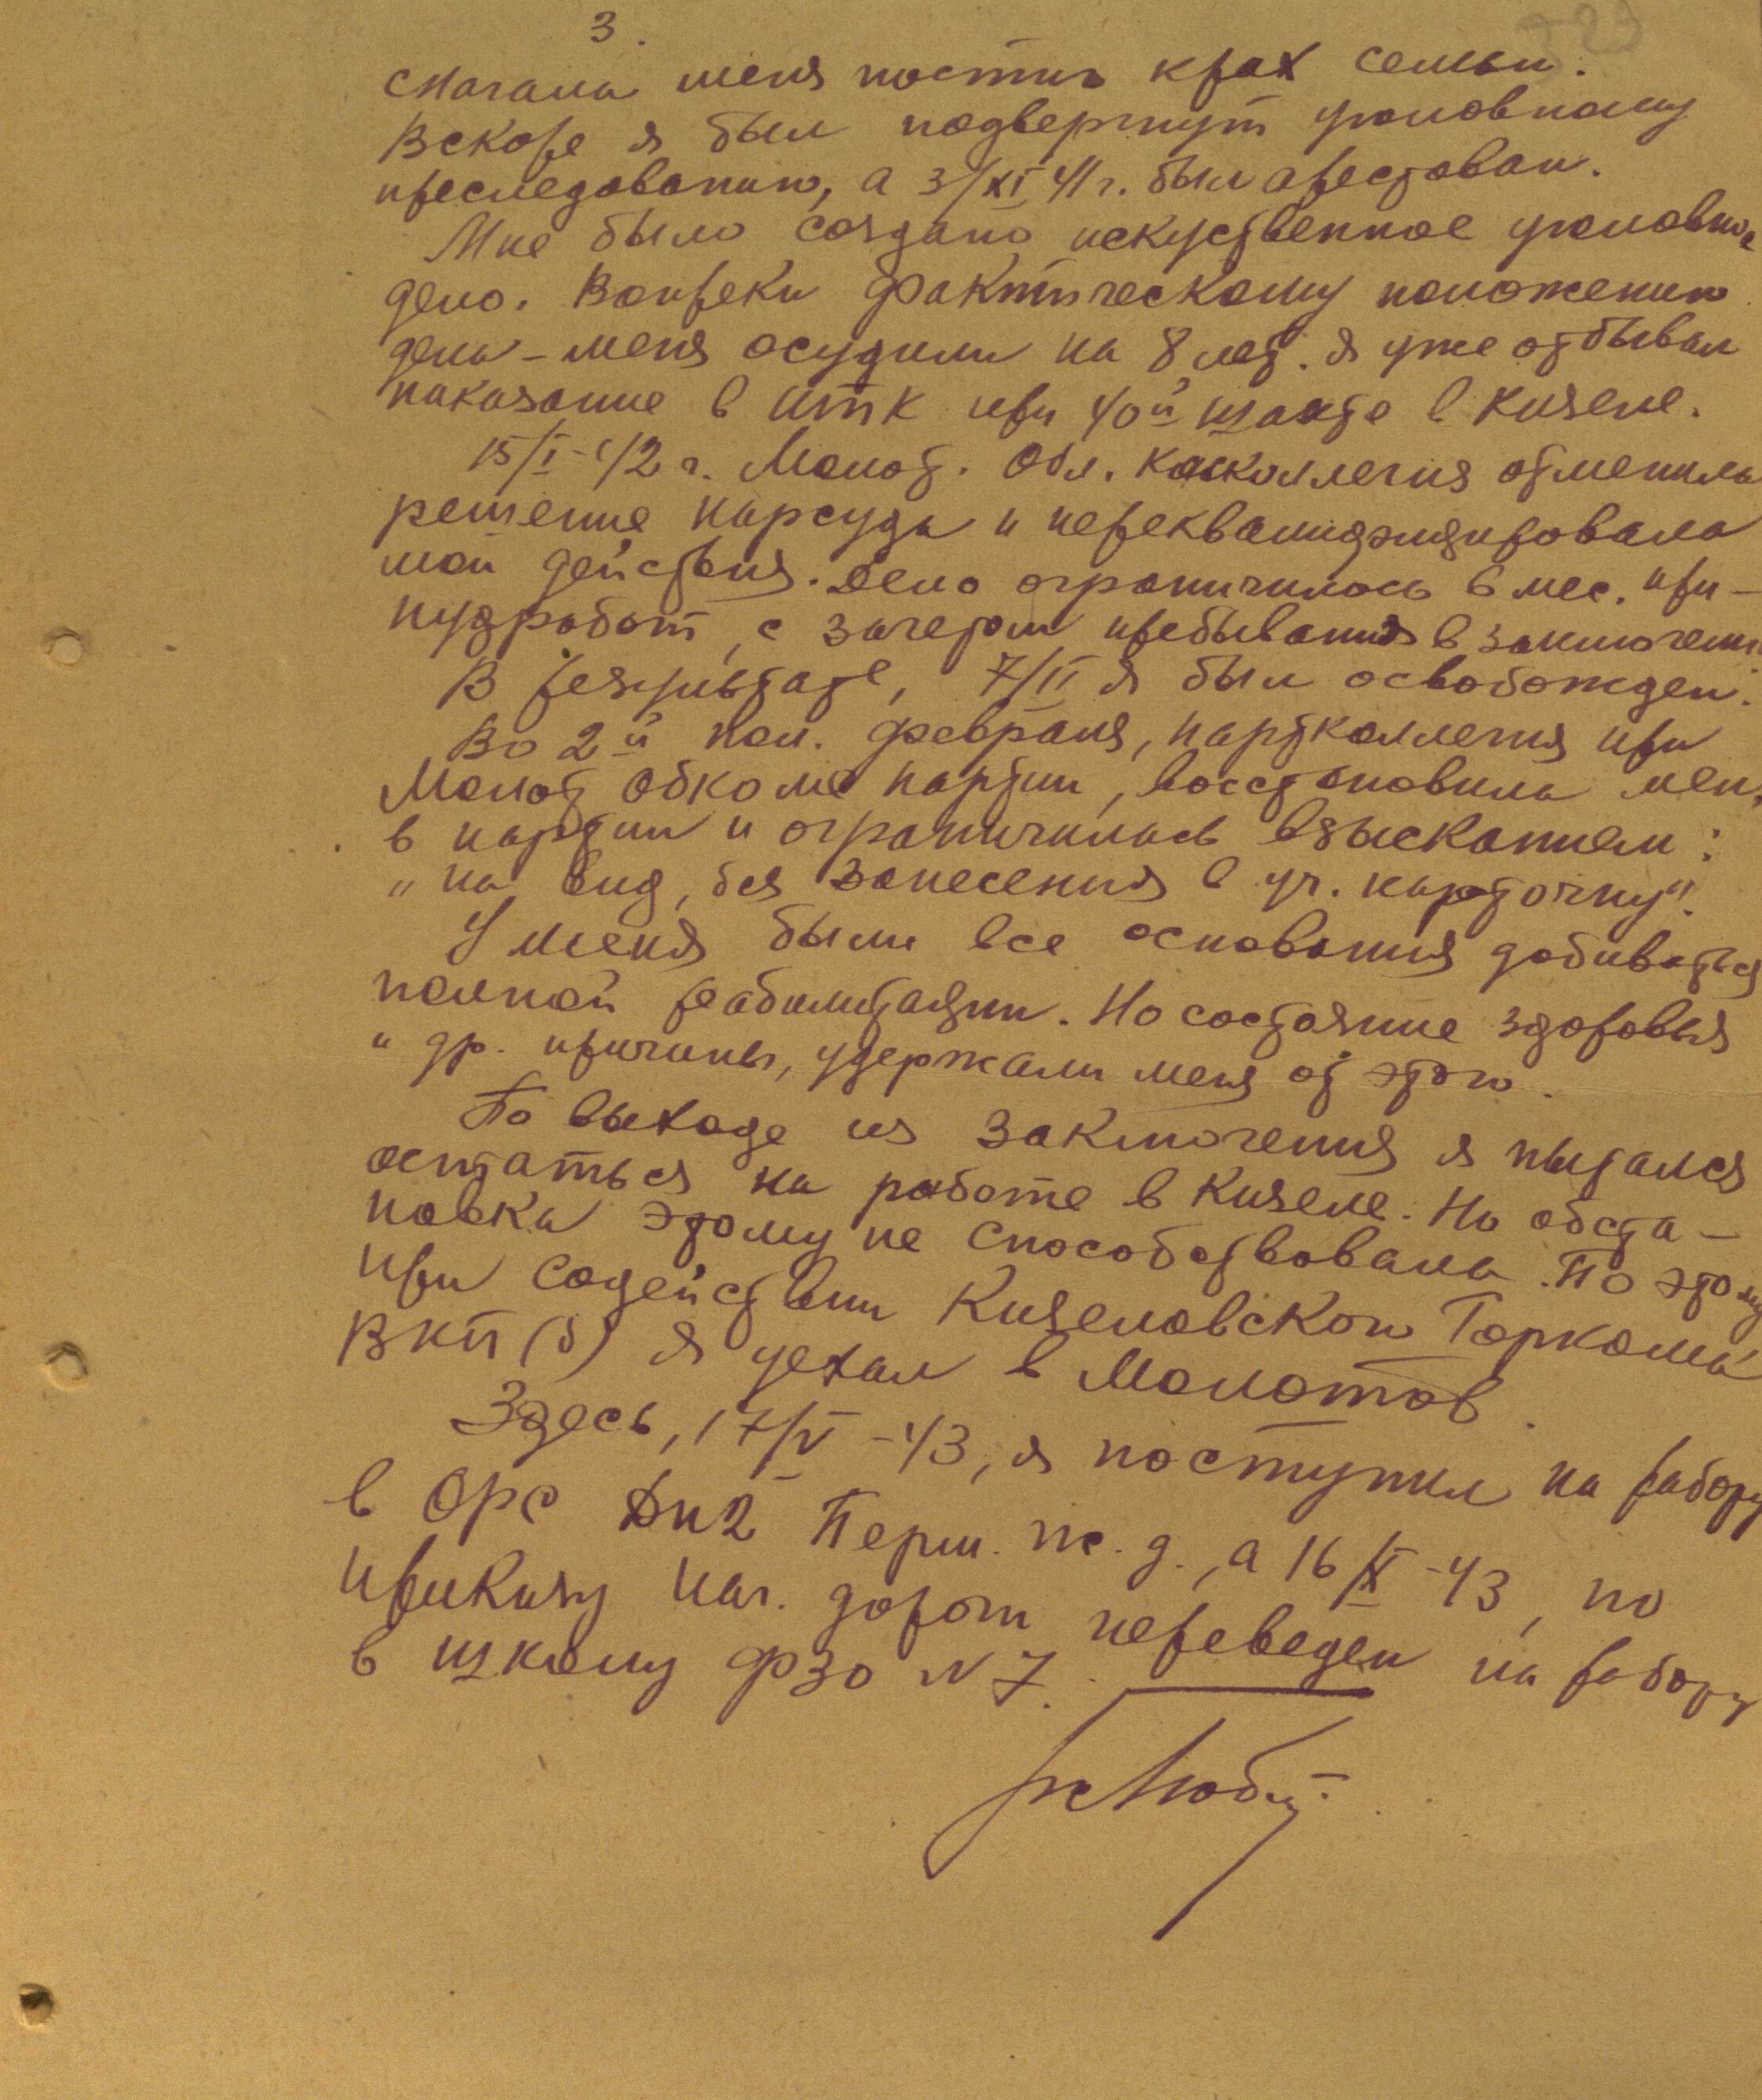 3.
сначала меня постиг крах семьи.
Вскоре я был подвергнут уголовному
преследованию, а 3/XI 41 г. был арестован.
Мне было создано искуственное уголовное
дело. Вопреки фактическому положению
дела – меня осудили на 8 лет. Я уже отбывал
наказание в ИТК при 40й шахте в Кизеле.
15/I-42 г. Молот. Обл. Касколлегия отменила
решение нарсуда и переквалифицировала
мои действия. Дело ограничилось 6 мес. при-
нудработ, с зачетом пребывания в заключении
В результате, 7/II я был освобожден.
Во 2й пол. февраля, партколлегия при
Молот Обкоме партии, восстановила меня
в партии и ограничилась взысканием:
"на вид, без занесения в уч. карточку".
У меня были все основания добиваться
полной реабилитации. Но состояние здоровья
и др. причины, удержали меня от этого.
По выходе из заключения я пытался
остаться на работе в Кизеле. Но обста-
новка этому не способствовала. По этому
при содействии Кизеловского Горкома
ВКП(б) я уехал в Молотов.
Здесь, 17/V-43, я поступил на работу
в Орс Дн2 Перм. ж.д., а 16/X-43, по
приказу нач. дороги переведен на работу
в школу ФЗО №7.